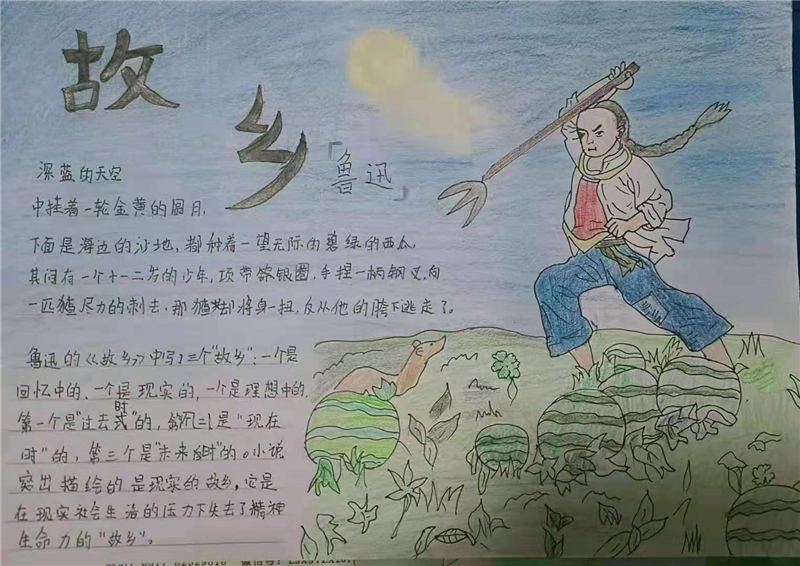 故
乡
「鲁迅」
深蓝的天空
中挂着一轮金黄的圆月,
下面是海边的沙地,都种着一望无际的碧绿的西瓜,
其间有一个十一二岁的少年,项带银圈,手捏一柄钢叉,向
一匹猹尽力的刺去,那猹却将身一扭,反从他的胯下逃走了。
鲁迅的《故乡》中写了三个"故乡":一个是
回忆中的、一个是现实的,一个是理想中的,
第一个是"过去时"的,第二个是"现在
时"的,第三个是"未来时"的。小说
突出描绘的是现实的故乡,它是
在现实社会生活的压力下失去了精神
生命力的"故乡"。